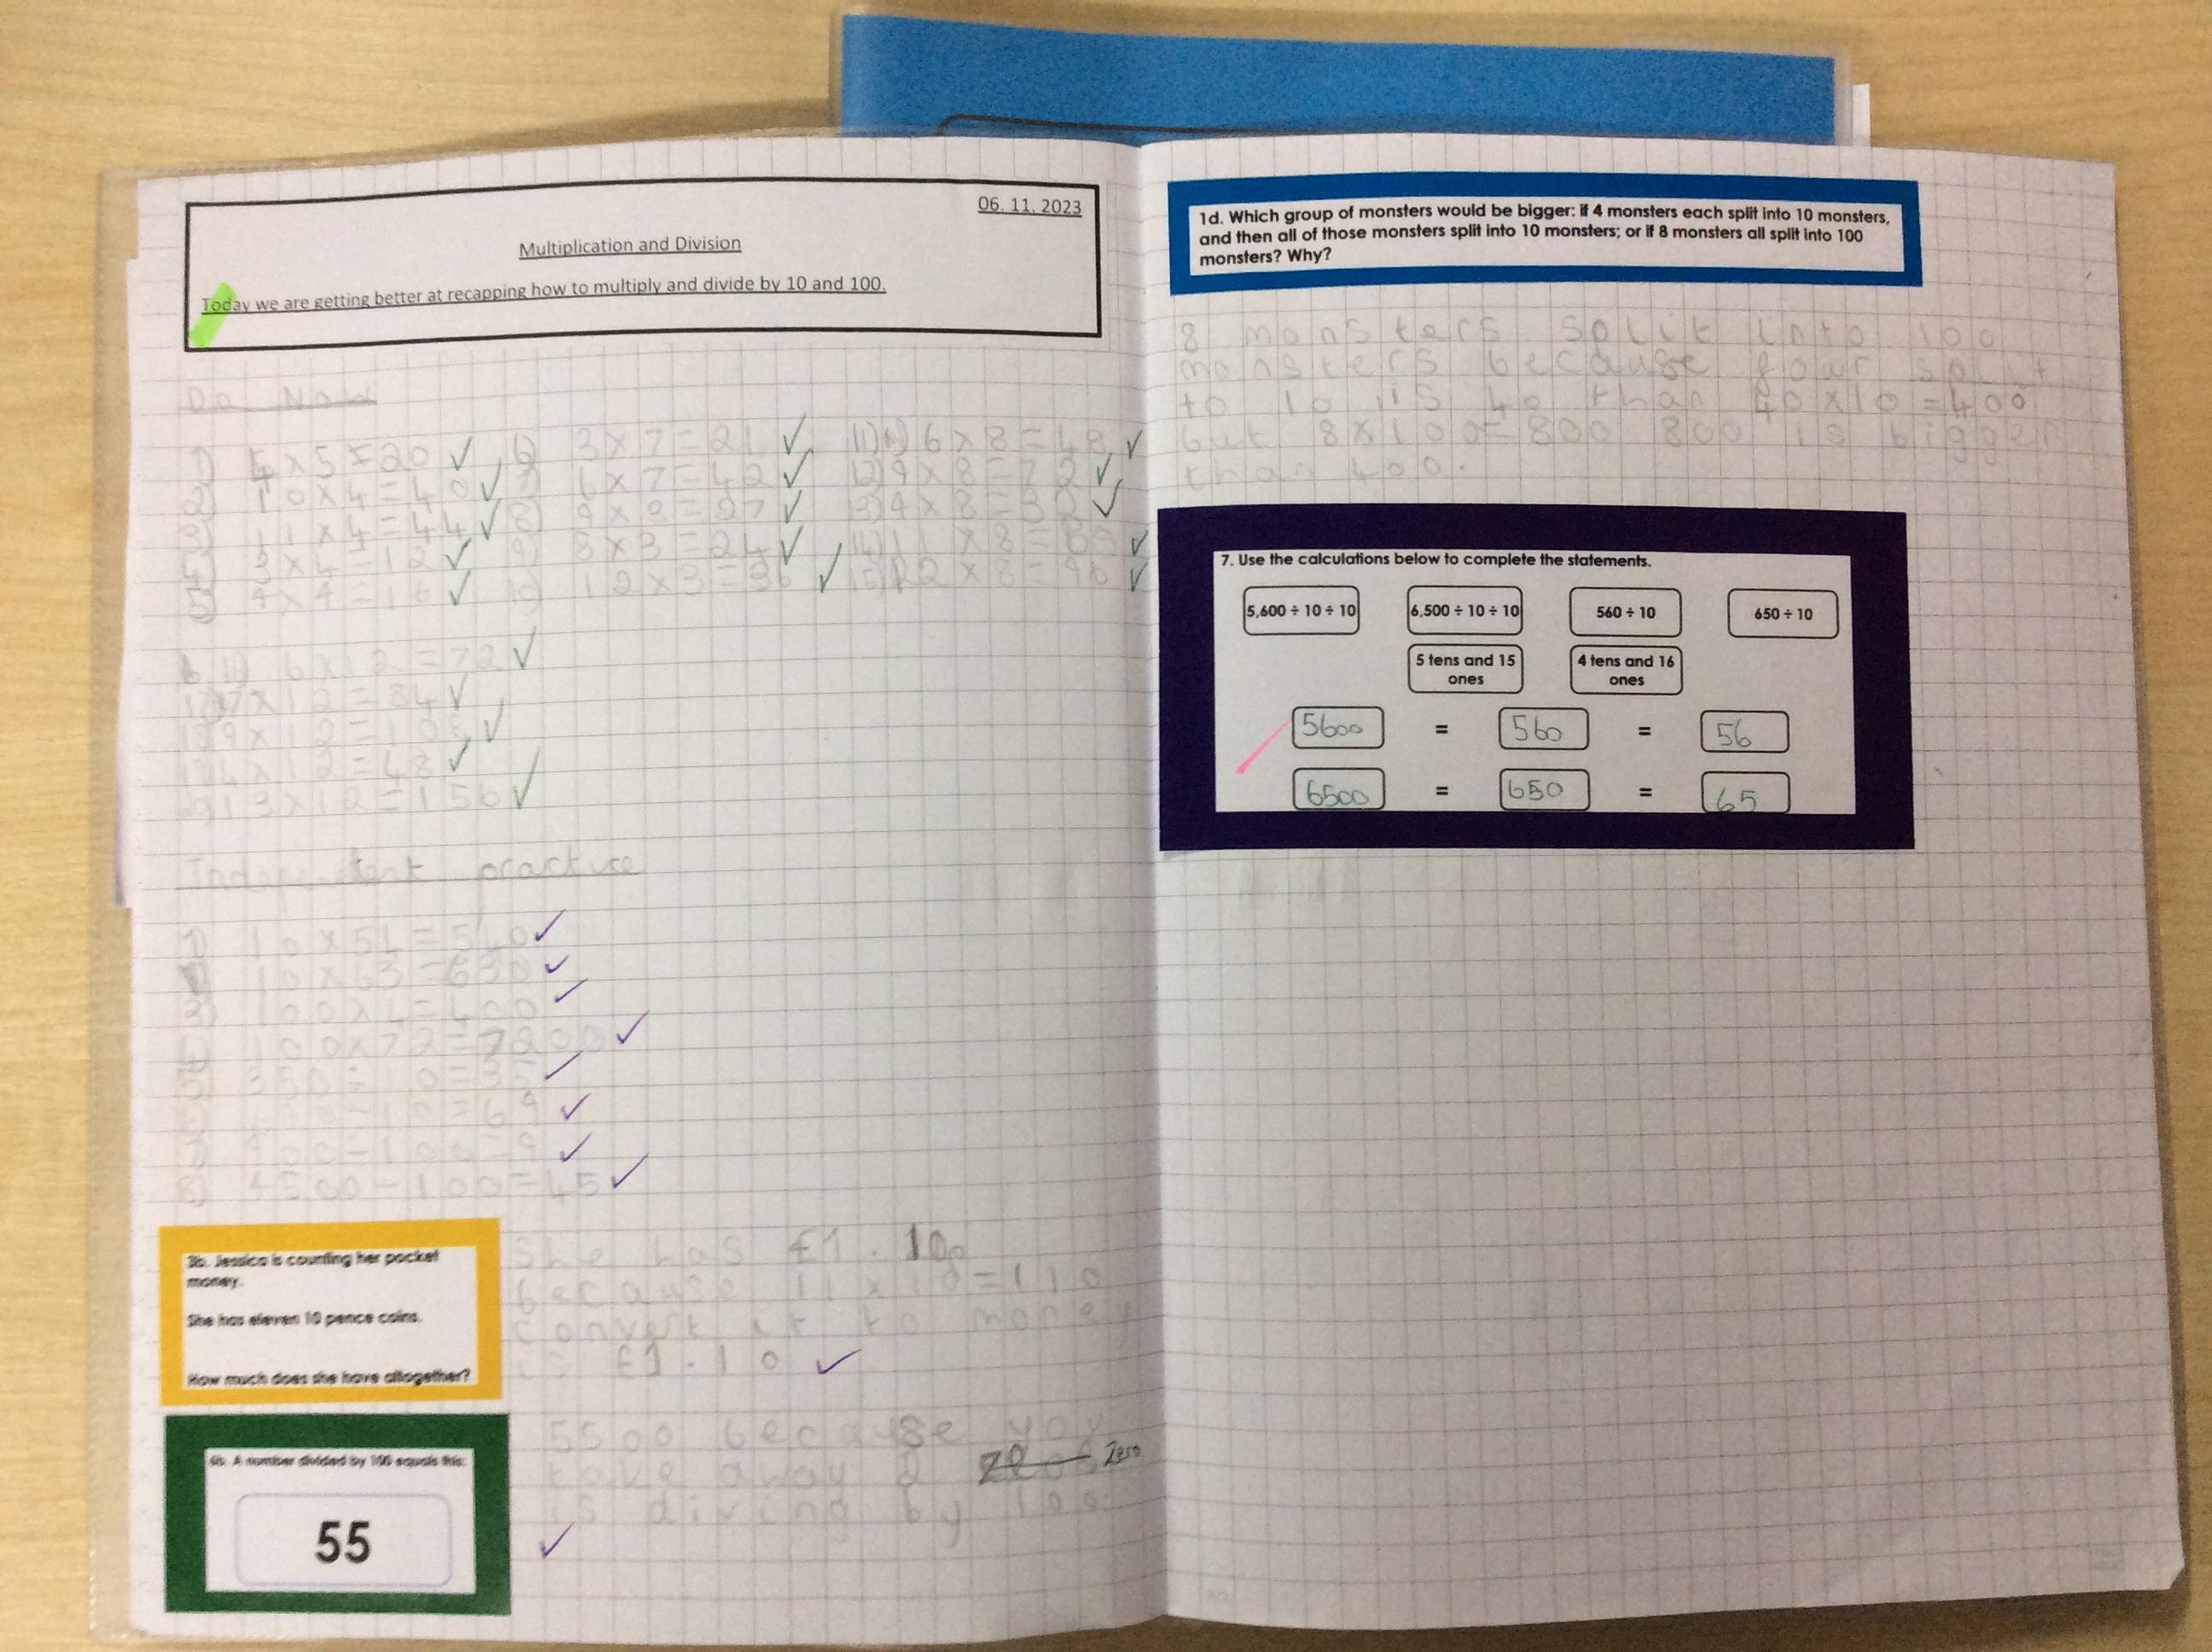 06. 11. 2023
Multiplication and Division
Today we are getting better at recapping how to multiply and divide by 10 and 100.
Do Now
1) 4 x 5 = 20
2) 10 x 4 = 40
3) 11 x 4 = 44
4) 3 x 4 = 12
5) 4 x 4 = 16
6) 3 x 7 = 21
7) 6 x 7 = 42
8) 9 x 3 = 27
9) 8 x 3 = 24
10) 12 x 3 = 36
11) 6 x 8 = 48
12) 9 x 8 = 72
13) 4 x 8 = 32
14) 11 x 8 = 88
15) 12 x 8 = 96
6 x 12 = 72
17) 7 x 12 = 84
18) 9 x 12 = 108
19) 4 x 12 = 48
13 x 12 = 156
Independent practice
1) 10 x 54 = 540
10 x 63 = 630
3) 100 x 4 = 400
4) 100 x 72 = 7200
5) 350 ÷ 10 = 35
÷ 10 = 69
7) 900 ÷ 100 = 9
8) 4500 ÷ 100 = 45
3b. Jessica is counting her pocket
money.
She has eleven 10 pence coins.
How much does she have altogether?
She has £1.10
because 11 x 10 = 110
convert it to money
is £1.10
6b. A number divided by 100 equals this:
55
5500 because you
take away 2 Zero
is diving by 100.
1d. Which group of monsters would be bigger: if 4 monsters each split into 10 monsters,
and then all of those monsters split into 10 monsters; or if 8 monsters all split into 100
monsters? Why?
8 monsters split into 100
monsters because four split
to 10 is 40 than 40 x 10 = 400
but 8 x 100 = 800 800 is bigger
than 400.
7. Use the calculations below to complete the statements.
5,600 ÷ 10 ÷ 10
6,500 ÷ 10 ÷ 10
560 ÷ 10
650 ÷ 10
5 tens and 15
ones
4 tens and 16
ones
5600 = 560 = 56
6500 = 650 = 65